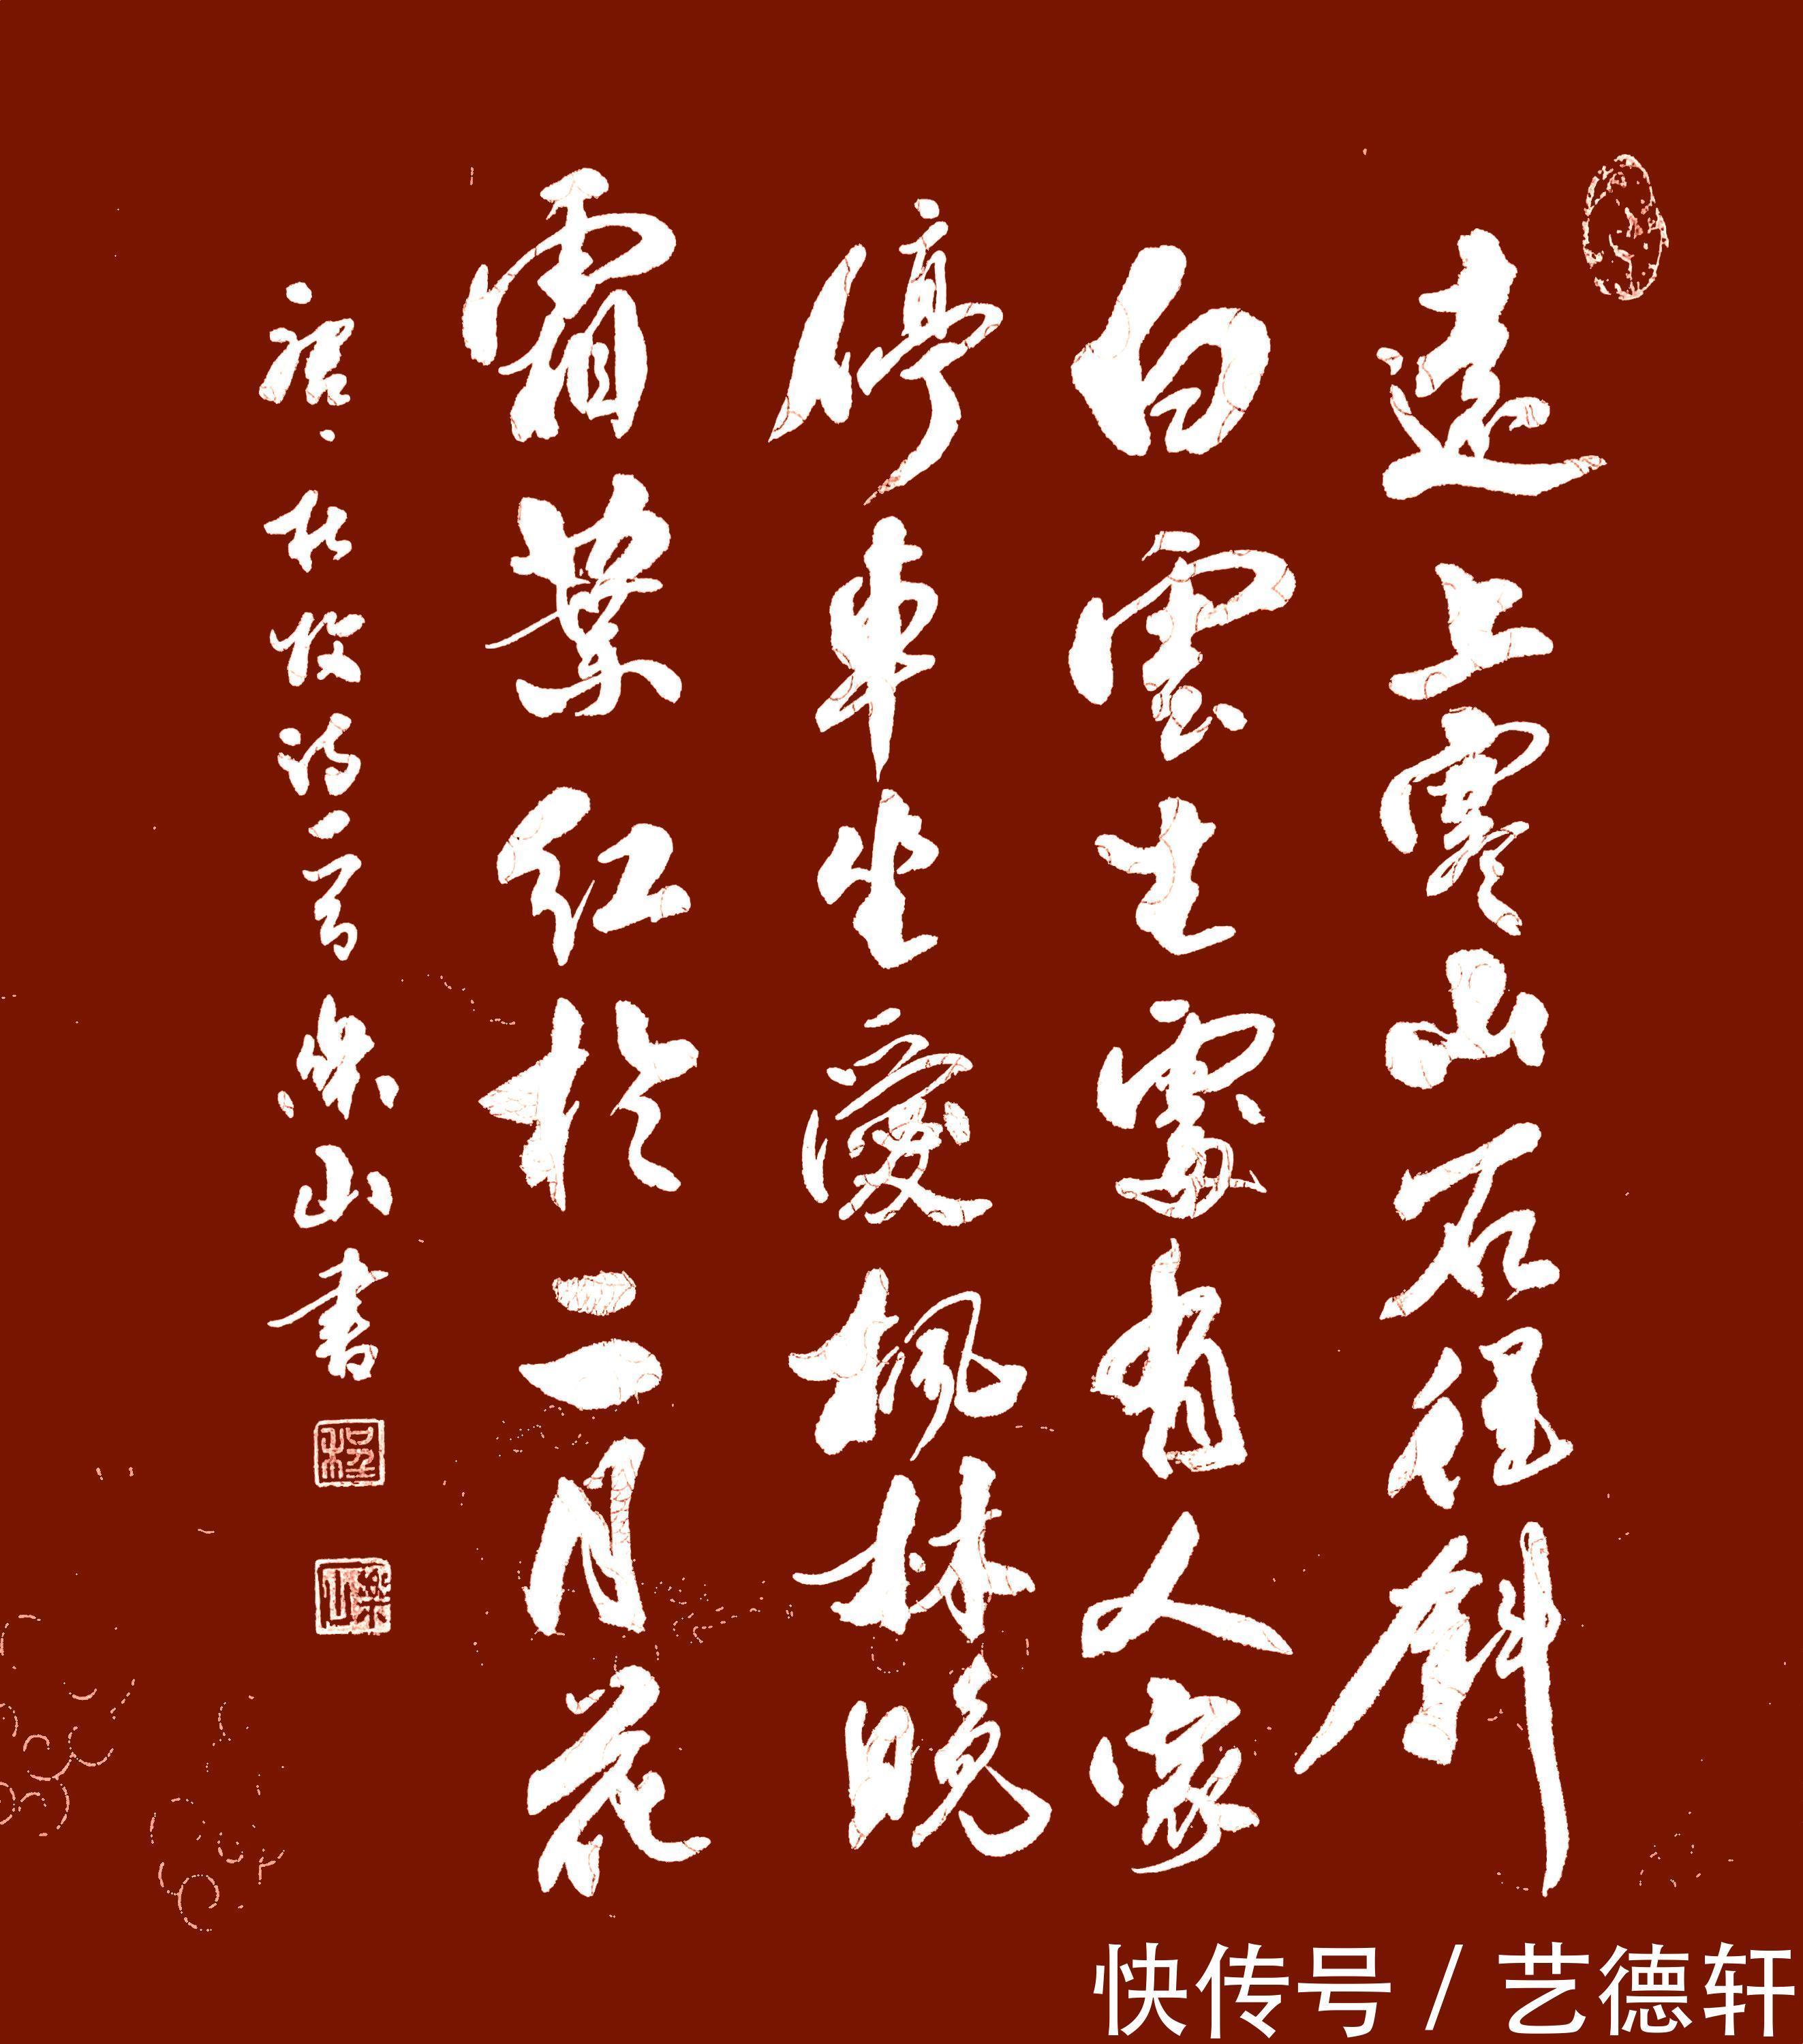 遠上寒山石徑斜
白雲生處有人家
停車坐愛楓林晚
霜葉紅於二月花
唐 杜牧詩一首 樂山書
快传号 / 艺德轩